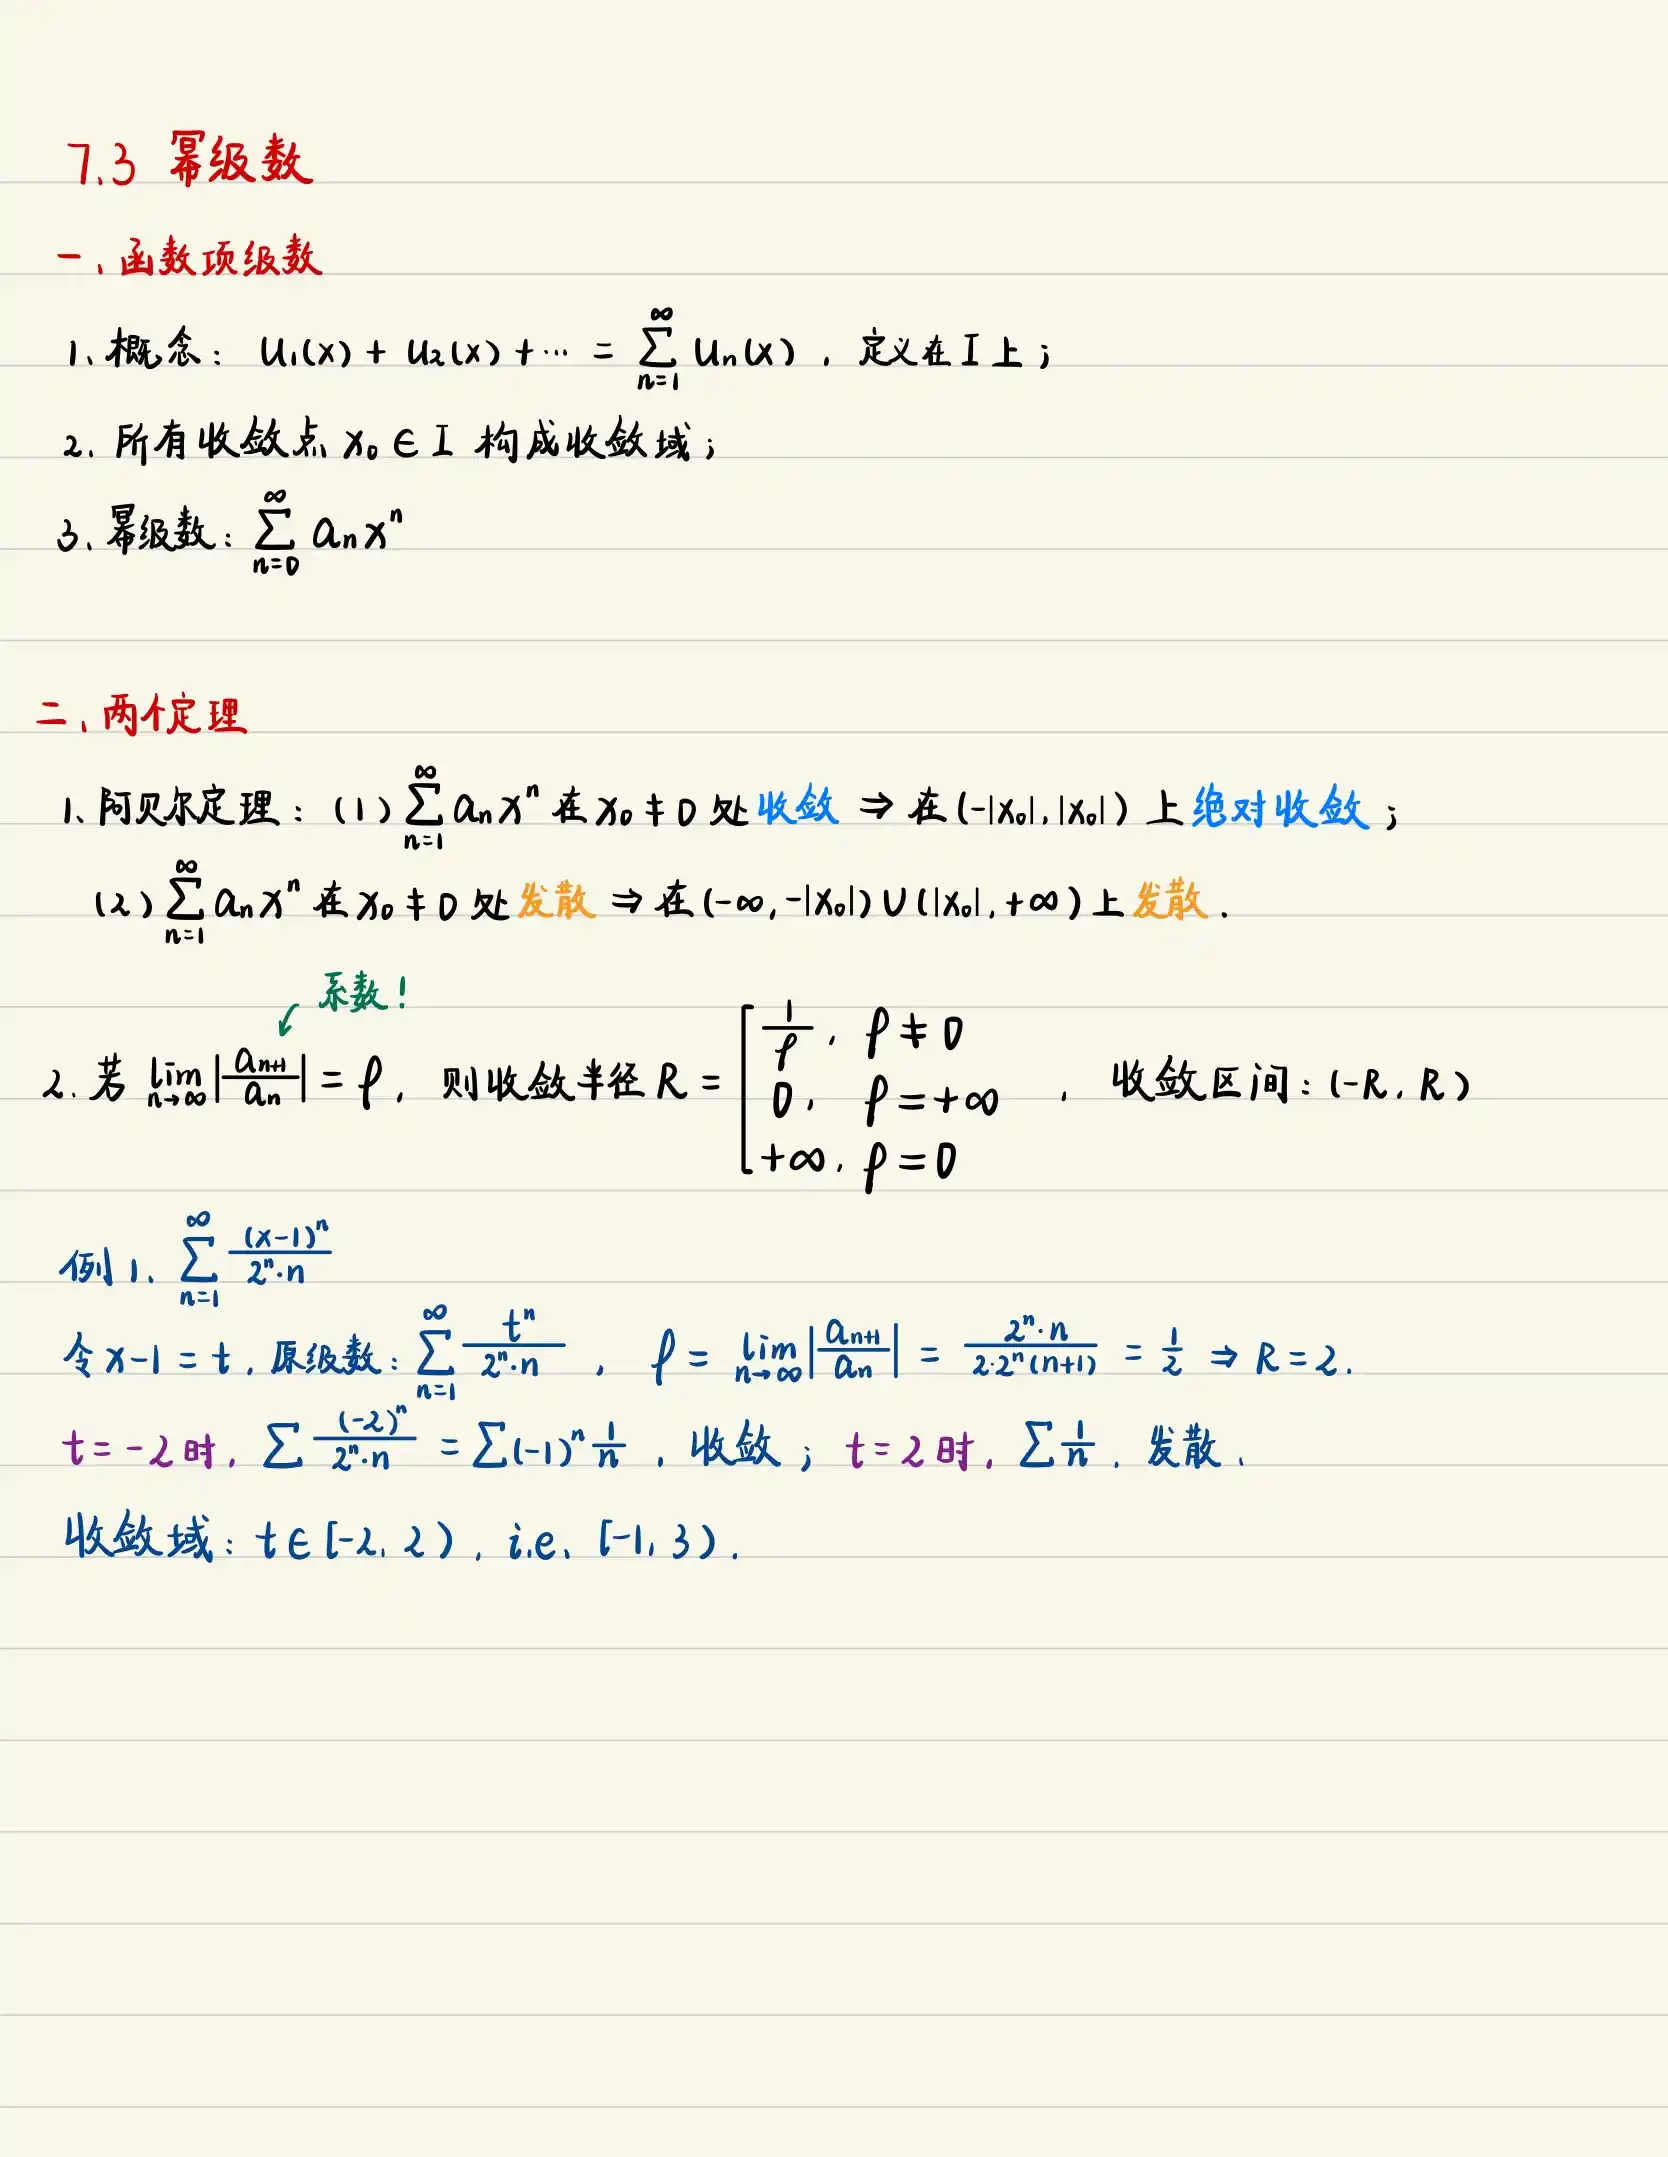 7.3 幂级数
一、函数项级数
1、概念： u₁(x) + u₂(x) + ⋯ = ∑_{n=1}^{∞} uₙ(x) ，定义在 I 上；
2. 所有收敛点 x₀ ∈ I 构成收敛域；
3、幂级数：∑_{n=0}^{∞} aₙxⁿ
二、两个定理
1、阿贝尔定理：(1) ∑_{n=1}^{∞} aₙxⁿ 在 x₀ ≠ 0 处收敛 ⇒ 在 (-|x₀|, |x₀|) 上绝对收敛；
(2) ∑_{n=1}^{∞} aₙxⁿ 在 x₀ ≠ 0 处发散 ⇒ 在 (-∞, -|x₀|) ∪ (|x₀|, +∞) 上发散.
系数！
2. 若 lim_{n→∞} |a_{n+1}/aₙ| = ρ，则收敛半径 R = [ 1/ρ, ρ ≠ 0
0, ρ = +∞
+∞, ρ = 0 ，收敛区间：(-R, R)
例1、∑_{n=1}^{∞} (x-1)ⁿ/(2ⁿ·n)
令 x-1 = t，原级数：∑_{n=1}^{∞} tⁿ/(2ⁿ·n) ， ρ = lim_{n→∞} |a_{n+1}/aₙ| = 2ⁿ·n/(2·2ⁿ(n+1)) = 1/2 ⇒ R = 2.
t = -2 时，∑ (-2)ⁿ/(2ⁿ·n) = ∑(-1)ⁿ 1/n ，收敛；t = 2 时，∑ 1/n ，发散、
收敛域：t ∈ [-2, 2) , i.e. [-1, 3) .